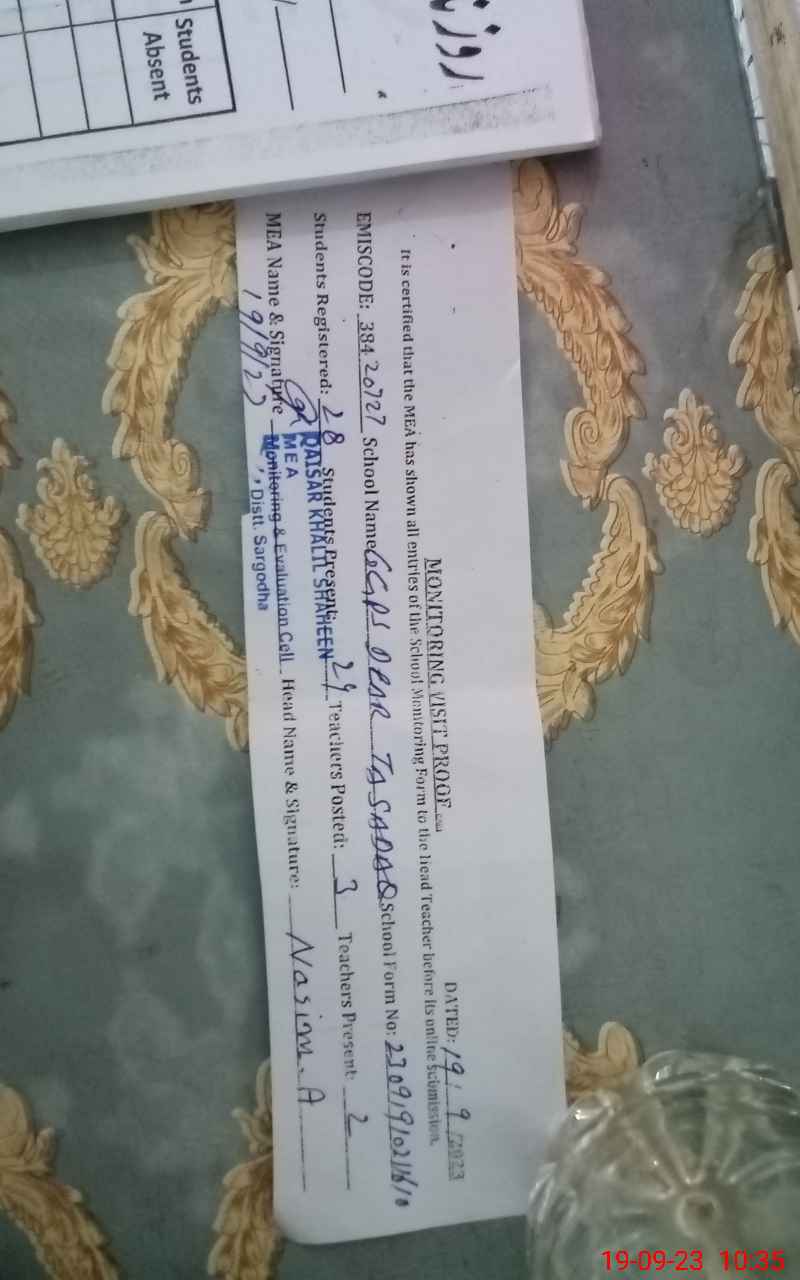 روز
Students
Absent
MONITORING VISIT PROOF
DATED: 19/9/2023
It is certified that the MEA has shown all entries of the School Monitoring Form to the head Teacher before its online submission.
EMISCODE: 38420727 School Name GGPS DERA TASADAQ School Form No:
Students Registered: 28 Students Present: 24 Teachers Posted: 3 Teachers Present: 2
MEA Name & Signature Head Name & Signature: Nasim. A
QAISAR KHALIL SHAHEEN
MEA
Monitoring & Evaluation Cell
Distt. Sargodha
19/9/23
19-09-23 10:35